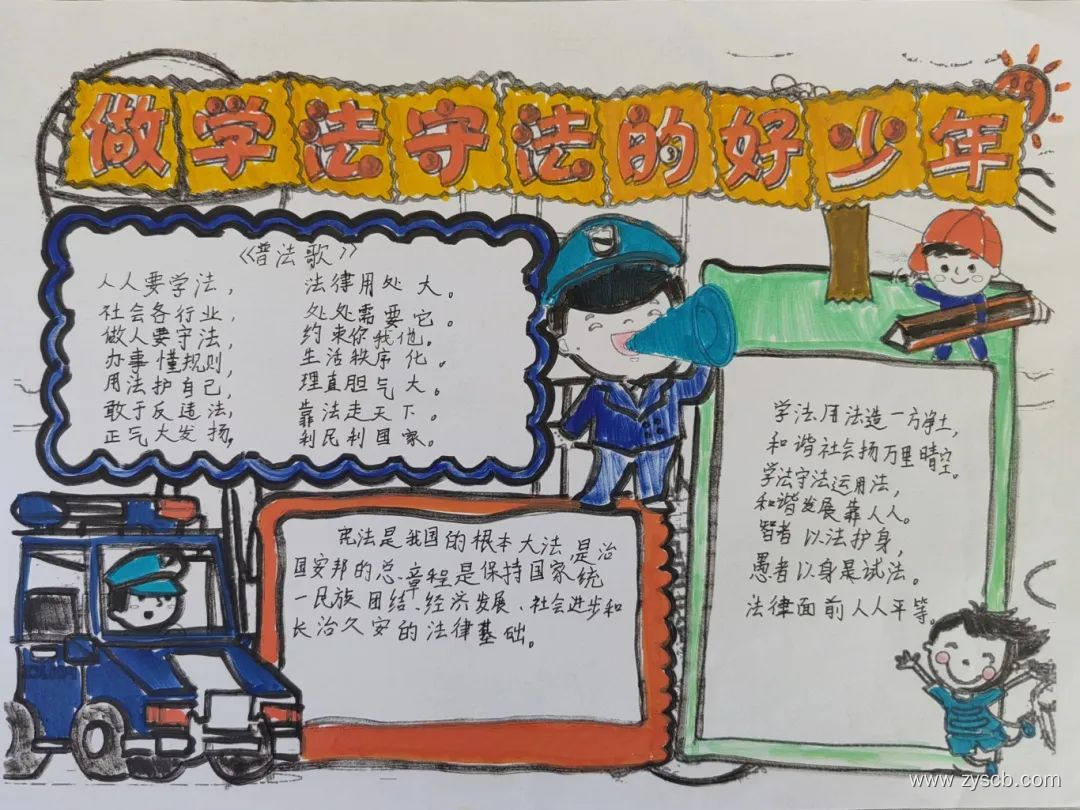 做学法守法的好少年
《普法歌》
人人要学法， 法律用处大。
社会各行业， 处处需要它。
做人要守法， 约束你我他。
办事懂规则， 生活秩序化。
用法护自己， 理直胆气大。
敢于反违法， 靠法走天下。
正气大发扬， 利民利国家。
宪法是我国的根本大法，是治
国安邦的总章程是保持国家统
一民族团结、经济发展、社会进步和
长治久安的法律基础。
学法用法造一方净土，
和谐社会扬万里晴空。
学法守法运用法，
和谐发展靠人人。
智者以法护身，
愚者以身是试法。
法律面前人人平等。
www.zyscb.com